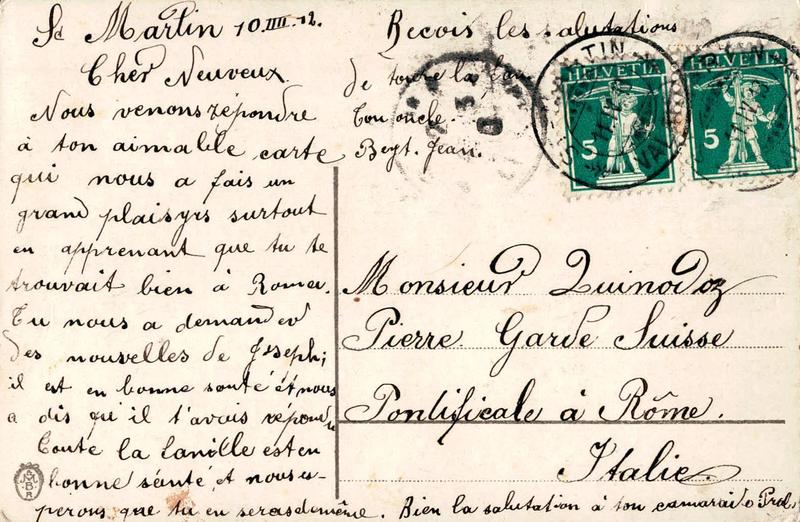 St Martin 10.IIII.12.
Cher Neuveux.
Nous venons répondre
à ton aimable carte
qui nous a fais un
grand plaisyrs surtout
en apprenant que tu te
trouvait bien à Roma.
Tu nous a demander
des nouvelles de Joseph;
il est en bonne santé et nous
a dis qu'il t'avais répondu
Toute la famille est en
bonne santé, et nous es-
perons que tu en seras de même. Bien la salutation à ton camarade
Recois les salutations
de toute la
Ton oncle.
Beyt. Jean.
HELVETIA
5
HELVETIA
5
Monsieur Quinodoz
Pierre Garde Suisse
Pontificale à Rôme.
Italie.